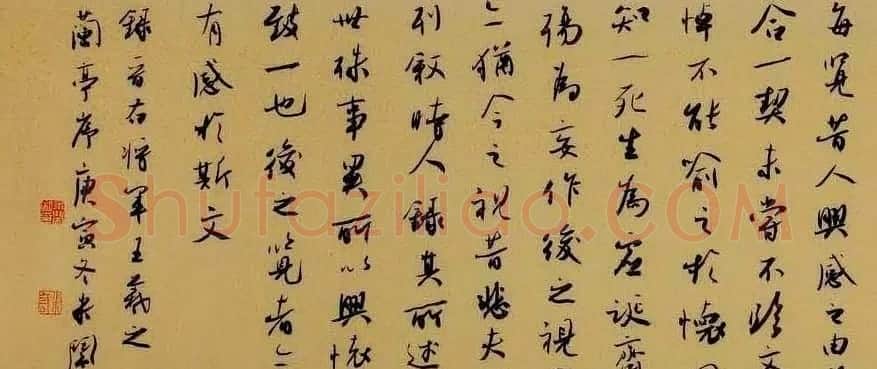 每覽昔人興感之由
合一契未嘗不臨文
悼不能喻之於懷
知一死生為虛誕齊
殤為妄作後之視
亦猶今之視昔悲夫
列敘時人錄其所述
世殊事異所以興懷
致一也後之覽者亦
有感於斯文
錄晉右將軍王羲之
蘭亭序庚寅冬
Shufaziliao.COM